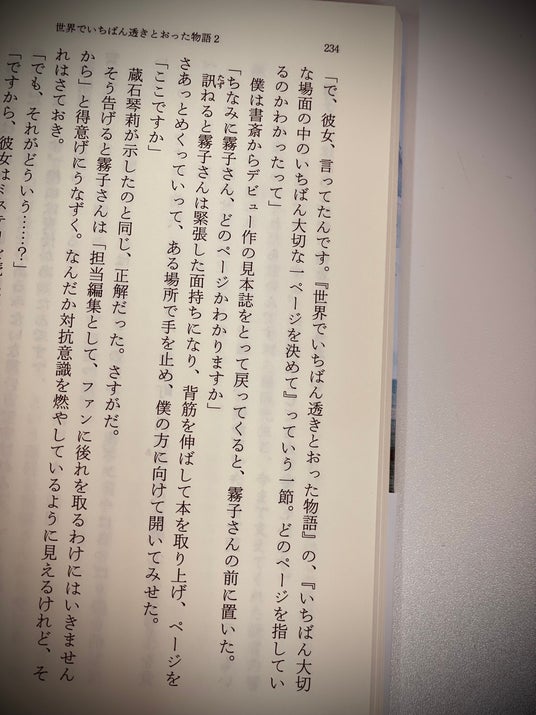 世界でいちばん透きとおった物語2
234
「で、彼女、言ってたんです。『世界でいちばん透きとおった物語』の、『いちばん大切
な場面の中のいちばん大切な一ページを決めて』っていう一節。どのページを指してい
るのかわかったって」
僕は書斎からデビュー作の見本誌をとって戻ってくると、霧子さんの前に置いた。
「ちなみに霧子さん、どのページかわかりますか」
訊ねると霧子さんは緊張した面持ちになり、背筋を伸ばして本を取り上げ、ページを
たず
さあっとめくっていって、ある場所で手を止め、僕の方に向けて開いてみせた。
「ここですか」
蔵石琴莉が示したのと同じ、正解だった。さすがだ。
そう告げると霧子さんは「担当編集として、ファンに後れを取るわけにはいきません
から」と得意げにうなずく。なんだか対抗意識を燃やしているように見えるけれど、そ
れはさておき。
「でも、それがどういう……?」
「ですから、彼女はミステリ